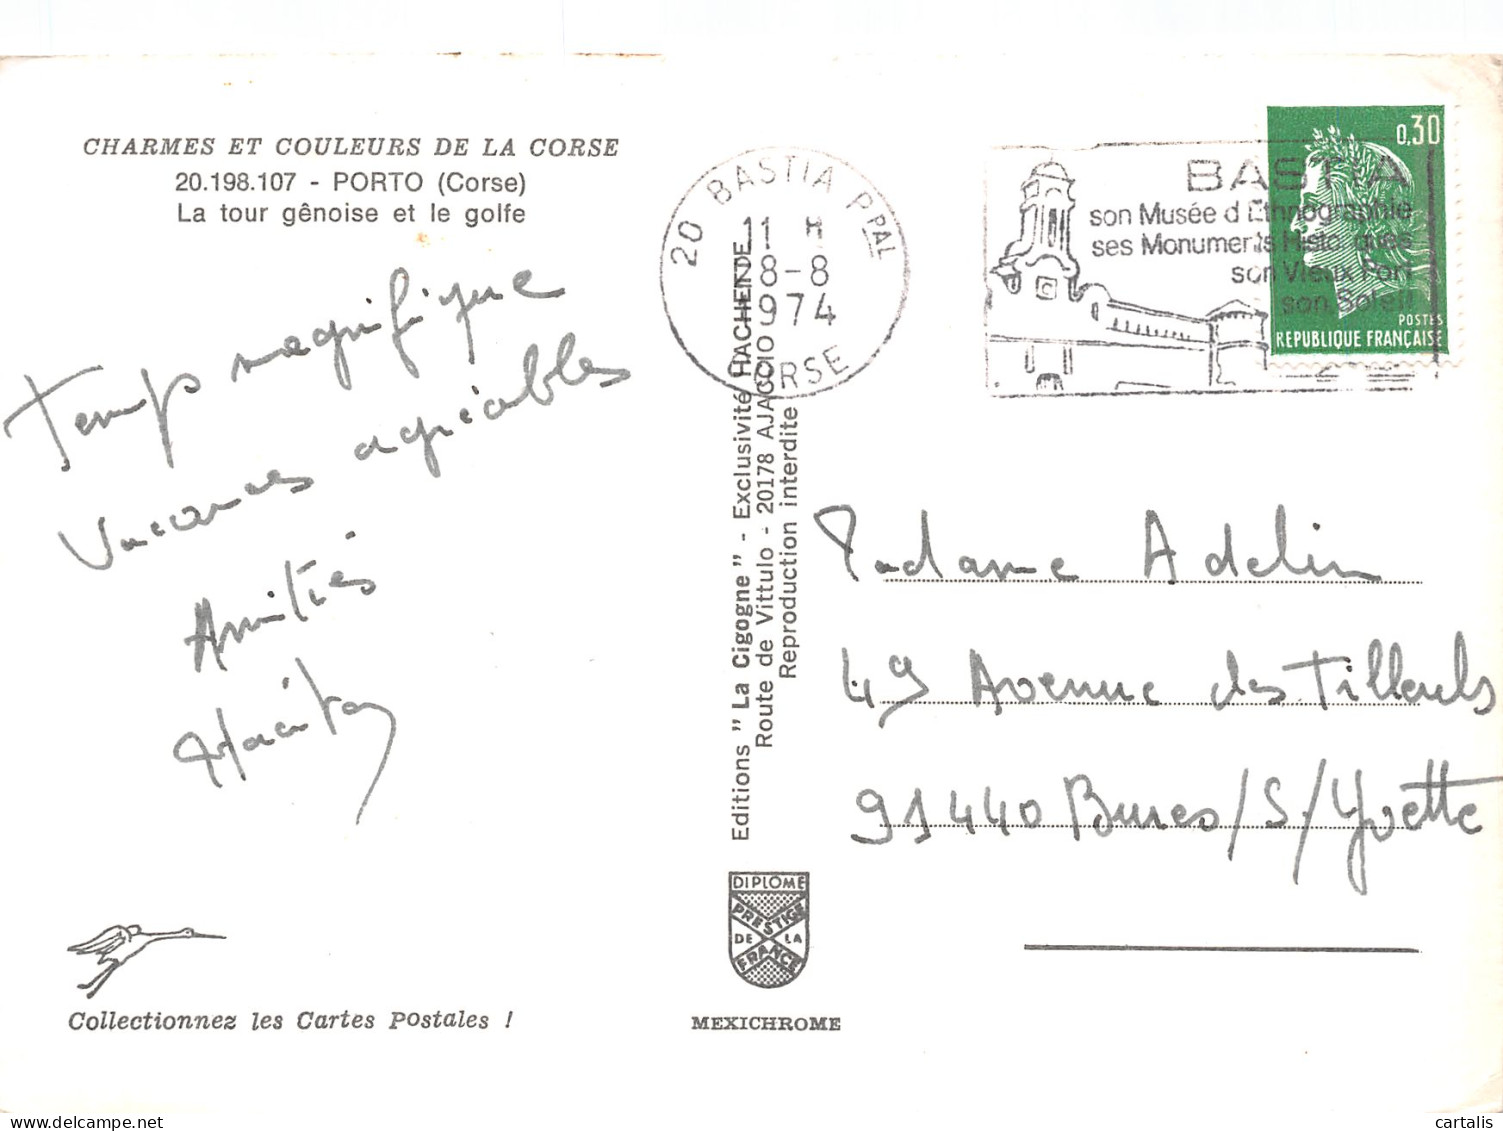 CHARMES ET COULEURS DE LA CORSE
20.198.107 - PORTO (Corse)
La tour gênoise et le golfe
Temps magnifique
Vacances agréables
Amitiés
Collectionnez les Cartes Postales !
Editions " La Cigogne " - Exclusivité HACHETTE
Route de Vittulo - 20178 AJACCIO
Reproduction interdite
DIPLOME
PRESTIGE
DE LA
FRANCE
MEXICHROME
20 BASTIA PPAL
11 H
8-8
1974
CORSE
BASTIA
son Musée d'Ethnographie
ses Monuments Historiques
son Vieux Port
son Soleil
0,30
POSTES
REPUBLIQUE FRANÇAISE
Madame Adelin
49 Avenue des Tilleuls
91440 Bures/S/Yvette
cartalis